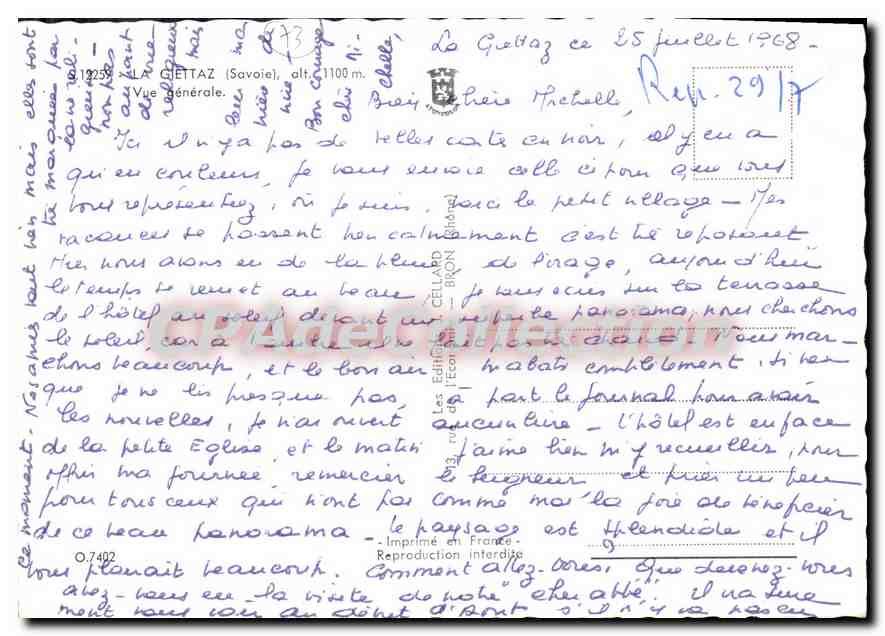 La Giettaz ce 25 juillet 1968.
Rep. 29/7
73
O.12259 - LA GIETTAZ (Savoie), alt. 1100 m.
Vue générale.
Bien chère Michelle,
Ici il n'y a pas de belles carte en noir, il y en a
qu'en couleurs, je vous envoie celle ci pour que vous
vous représentiez, où je suis, voici le petit village - Mes
vacances se passent bien calmement c'est très reposant
Hier nous avons eu de la pluie, de l'orage, aujourd'hui
le temps se remet au beau, je vous écris sur la terrasse
de l'hôtel au soleil devant un superbe panorama, nous cherchons
le soleil, car à l'ombre il ne fait pas chaud. Nous mar-
chons beaucoup, et le bon air m'abats complètement, si bien
que je ne lis presque pas, à part le journal pour avoir
les nouvelles, je n'ai ouvert aucun livre - L'hôtel est en face
de la petite Eglise, et le matin j'aime bien m'y recueillir, pour
offrir ma journée, remercier le Seigneur et prier un peu
pour tous ceux qui n'ont pas comme moi la joie de bénéficier
de ce beau panorama - le paysage est splendide et il
vous plairait beaucoup. Comment allez-vous, que devenez-vous
avez-vous eu la visite de notre cher abbé? il va sûre
ment vous voir au début d'Août s'il n'y va pas en
ce moment - Nos amis sont bien mais elles sont
très marquées par
la vie reli-
gieuse -
non pas
autant
de vie
religieuse
mais
leur ma
nière de
vie -
Bon courage
chère Mi-
chelle,
Les Editions J. CELLARD
13, rue de l'Ecorcheloup - BRON (Rhône)
- Imprimé en France -
Reproduction interdite
O.7402
CPAdeCollection